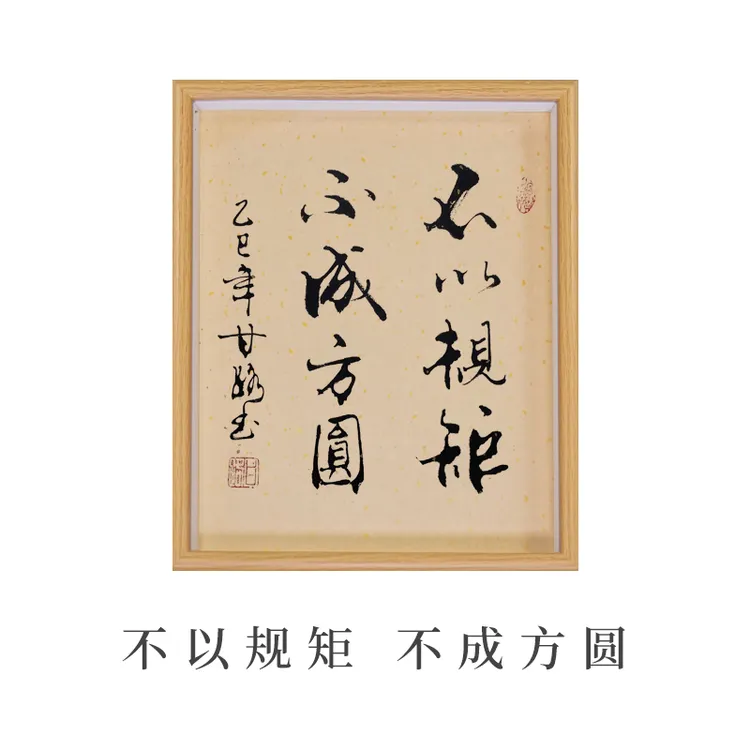 不以規矩
不成方圓
乙巳年甘露书
不以规矩 不成方圆